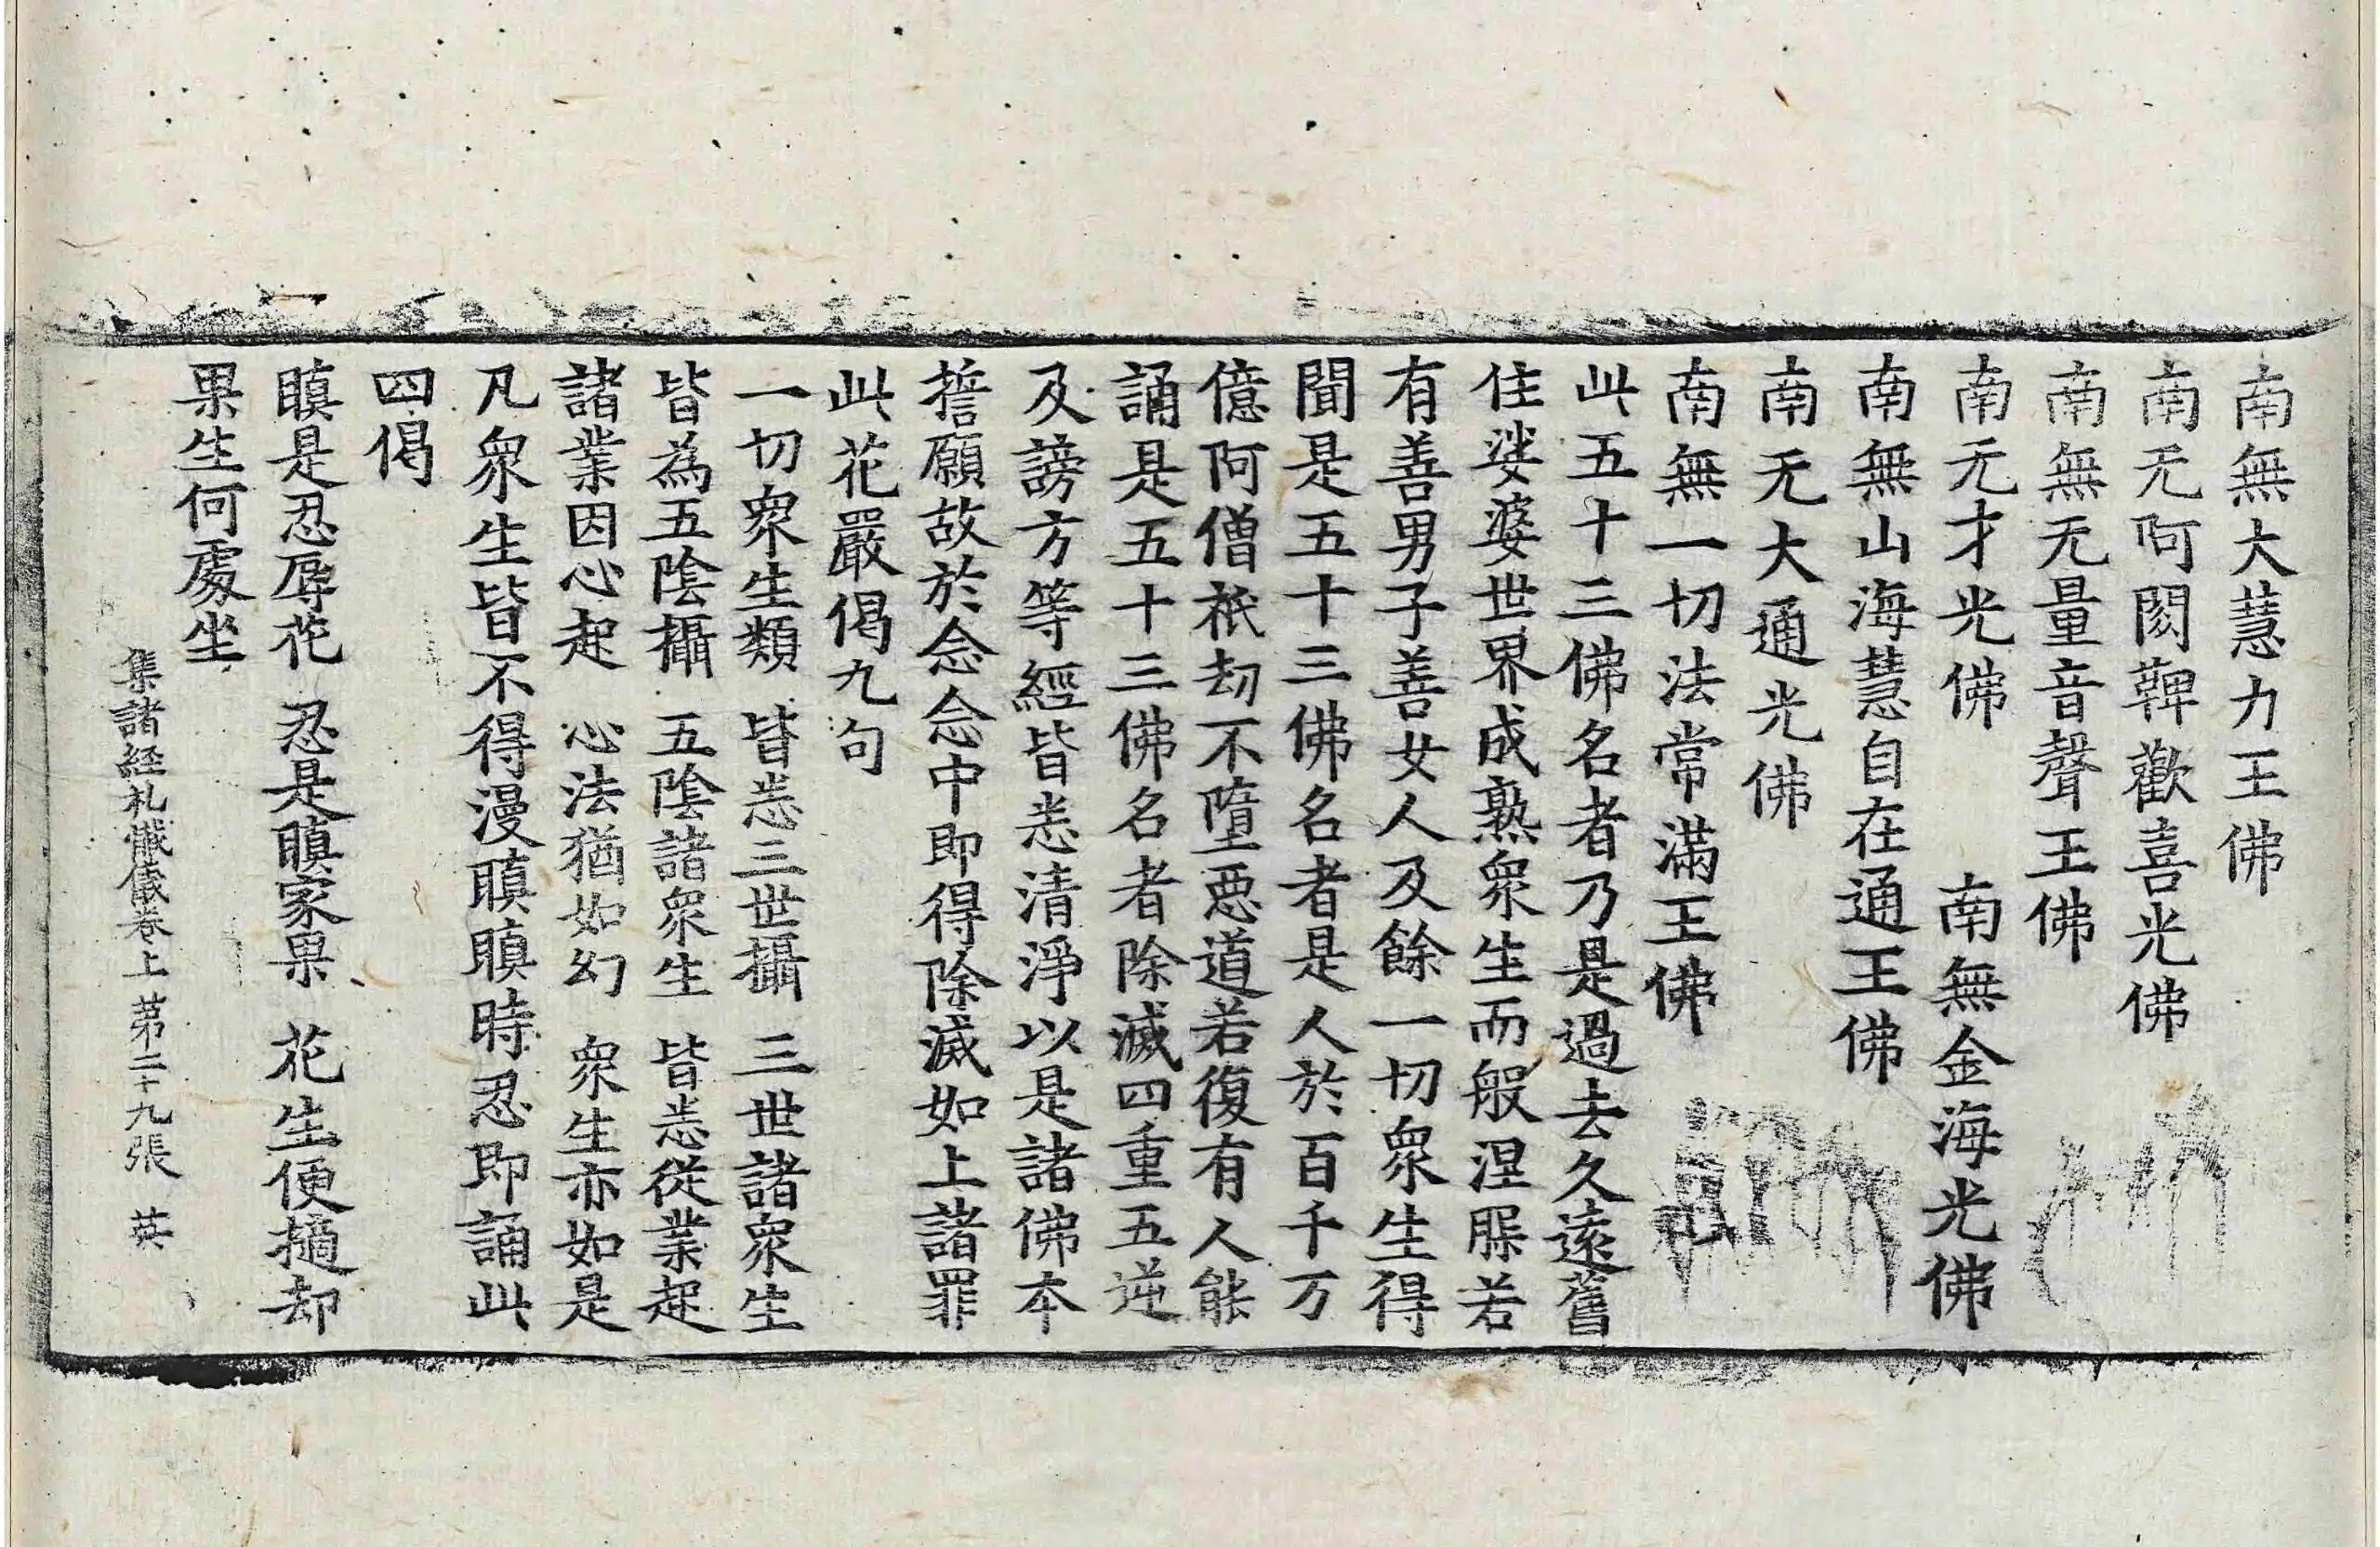 南無大慧力王佛
南无阿閦鞞歡喜光佛
南無无量音聲王佛
南无才光佛　南無金海光佛
南無山海慧自在通王佛
南无大通光佛
南無一切法常滿王佛
此五十三佛名者乃是過去久遠舊
住娑婆世界成熟衆生而般涅脲若
有善男子善女人及餘一切衆生得
聞是五十三佛名者是人於百千万
億阿僧祇劫不墮惡道若復有人能
誦是五十三佛名者除滅四重五逆
及謗方等經皆悉清淨以是諸佛本
誓願故於念念中即得除滅如上諸罪
此花嚴偈九句
一切衆生類　皆悉三世攝　三世諸衆生
皆為五陰攝　五陰諸衆生　皆悉從業起
諸業因心起　心法猶如幻　衆生亦如是
凡衆生皆不得漫瞋瞋時忍即誦此
四偈
瞋是忍辱花　忍是瞋家果　花生便擿却
果生何處坐
集諸経礼懺儀卷上　苐二十九張　英